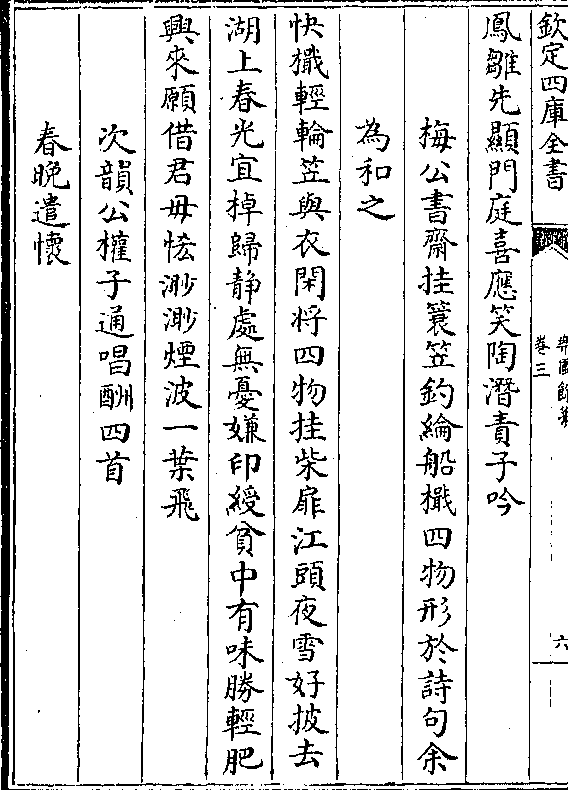 欽定四庫全書
卷三
六
鳳雛先顯門庭喜應笑陶潛責子吟
梅公書齋挂簑笠釣綸船檝四物形於詩句余
為和之
快檝輕輪笠與衣閑將四物挂柴扉江頭夜雪好披去
湖上春光宜棹歸静處無憂嫌印綬貧中有味勝輕肥
興來願借君毋恡渺渺煙波一葉飛
次韻公權子通唱酬四首
春晩遣懷